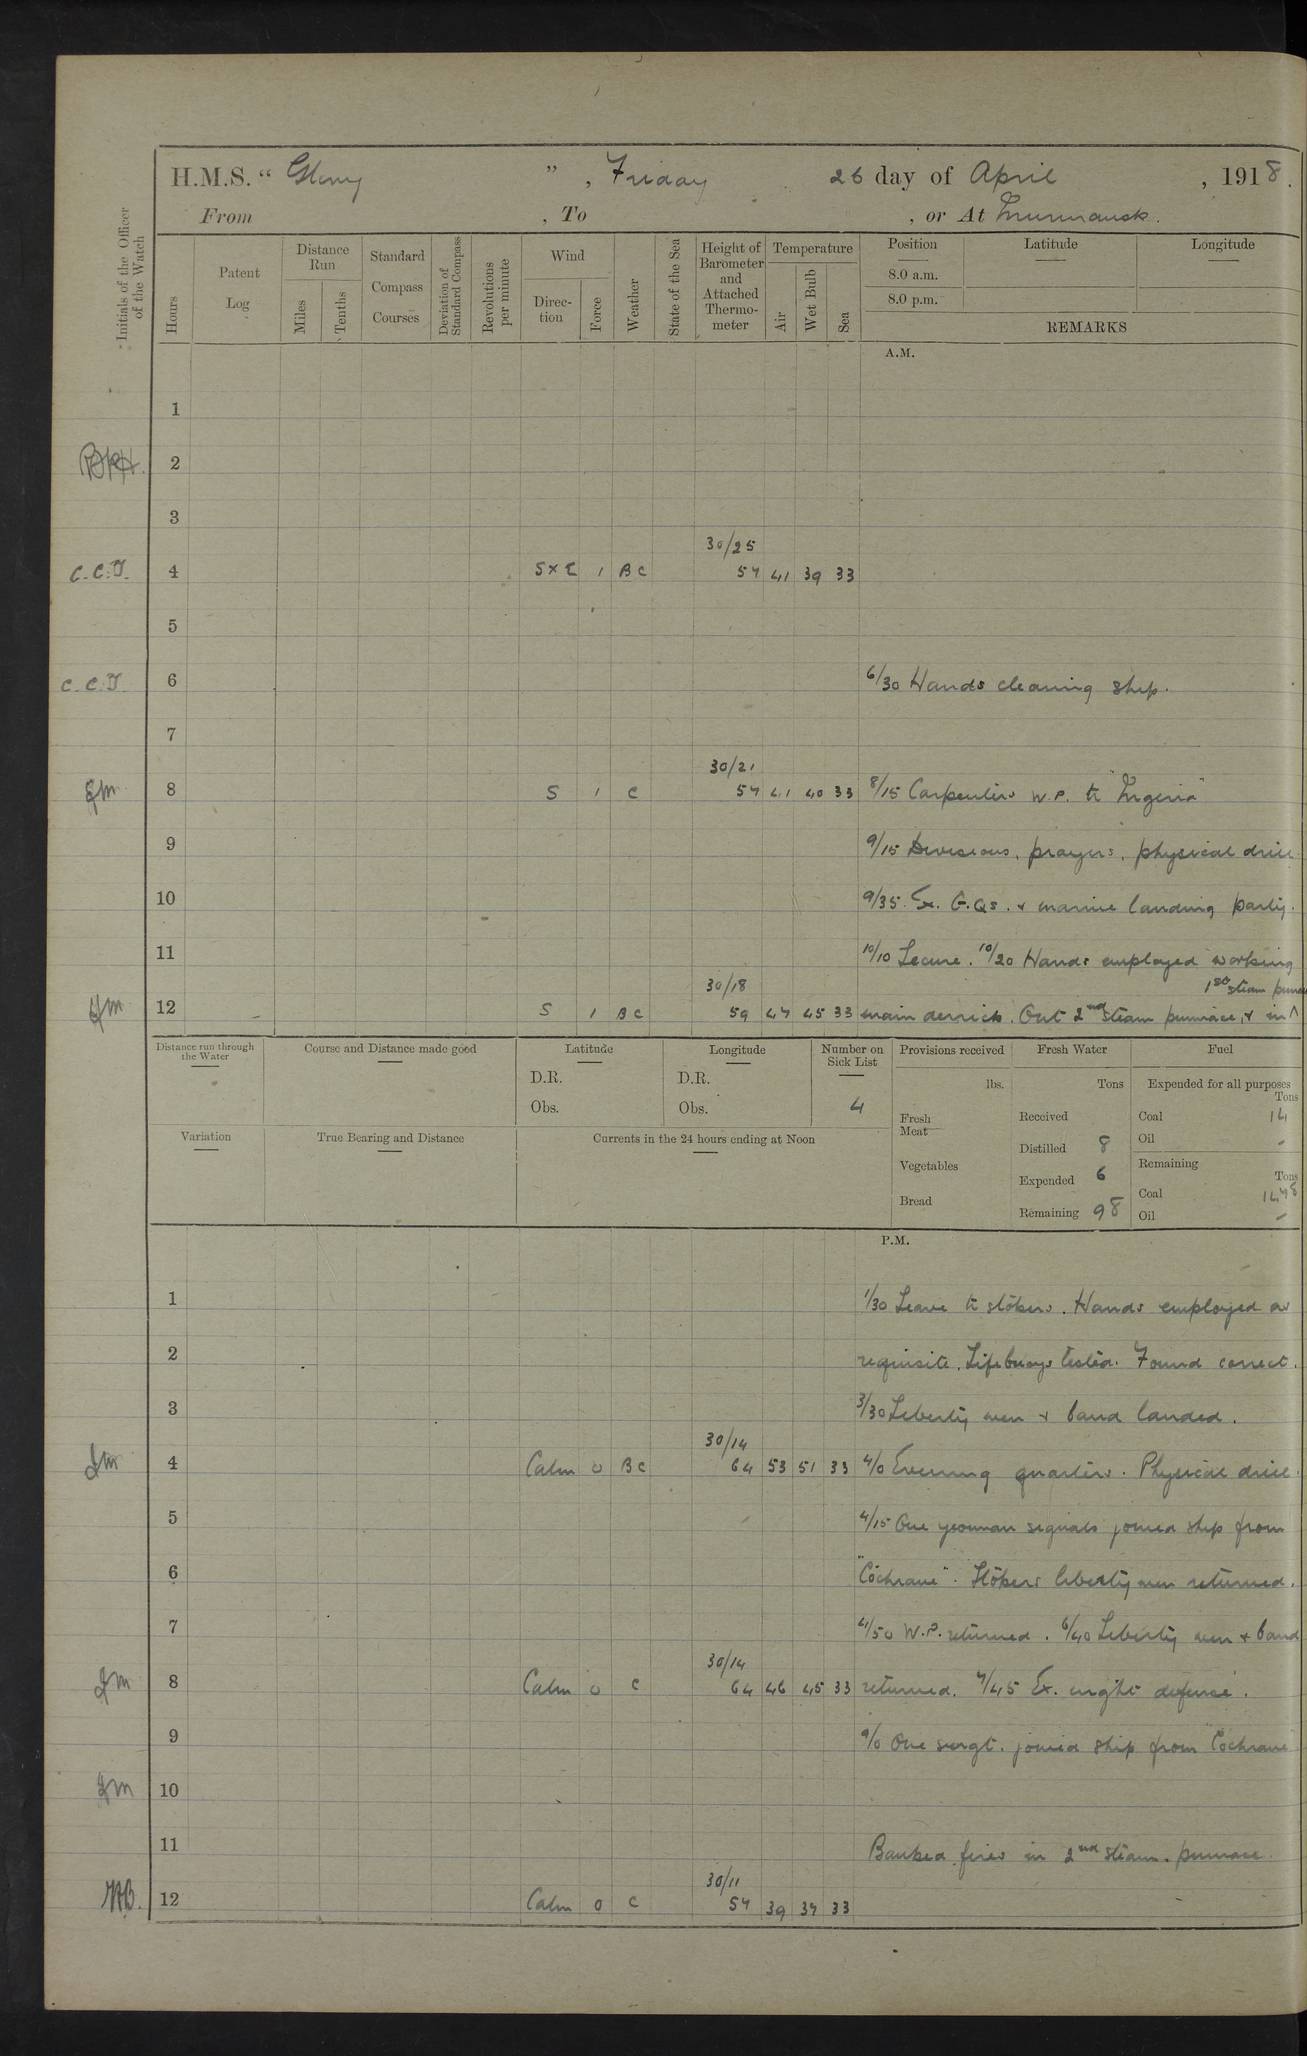 H.M.S. " Glory " , Friday 26 day of April , 1918.
From , To , or At Murmansk.
Initials of the Officer of the Watch
Hours
Patent Log
Distance Run
Miles
Tenths
Standard Compass Courses
Deviation of Standard Compass
Revolutions per minute
Wind
Direc-tion
Force
Weather
State of the Sea
Height of Barometer and Attached Thermo-meter
Temperature
Air
Wet Bulb
Sea
Position Latitude Longitude
8.0 a.m.
8.0 p.m.
REMARKS
A.M.
1
2
3
30/25
C.C.T. 4 SxE 1 BC 57 41 39 33
5
C.C.T. 6 6/30 Hands cleaning ship.
7
30/21
8 S 1 C 57 41 40 33 8/15 Carpenters W.P. to "Nigeria"
9 9/15 Divisions, prayers, physical drill
10 9/35 Ex. G.Qs. & marine landing party.
11 10/10 Secure. 10/20 Hands employed working
30/18 1st steam pinnace
12 S 1 BC 59 47 45 33 main derrick. Out 2nd steam pinnace, & in ^
Distance run through the Water
Course and Distance made good
Latitude
Longitude
Number on Sick List
Provisions received
Fresh Water
Fuel
D.R. D.R. lbs. Tons Expended for all purposes Tons
Obs. Obs. 4
Fresh Meat Received Coal 14
Variation True Bearing and Distance Currents in the 24 hours ending at Noon
Distilled 8 Oil -
Vegetables Expended 6 Remaining Tons
Bread Coal 1478
Remaining 98 Oil -
P.M.
1 1/30 Leave to stokers. Hands employed as
2 requisite. Lifebuoys tested. Found correct.
3 3/30 Liberty men & band landed.
30/14
4 Calm 0 BC 64 53 51 33 4/0 Evening quarters. Physical drill.
5 4/15 One yeoman signals joined ship from
6 "Cochrane". Stokers liberty men returned.
7 4/50 W.P. returned. 6/40 Liberty men & band
30/14
8 Calm 0 C 64 46 45 33 returned. 7/45 Ex. night defence.
9 9/0 One sergt. joined ship from "Cochrane"
10
11 Banked fires in 2nd steam pinnace.
30/11
12 Calm 0 C 57 39 37 33